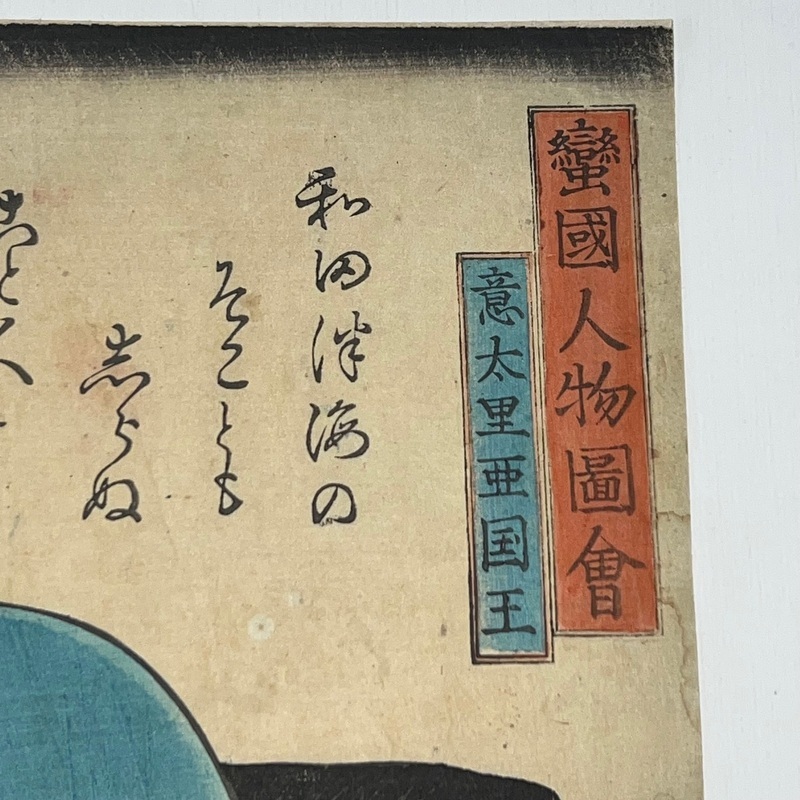 蠻國人物圖會
意太里亜国王
和田津海の
そことも
志らぬ